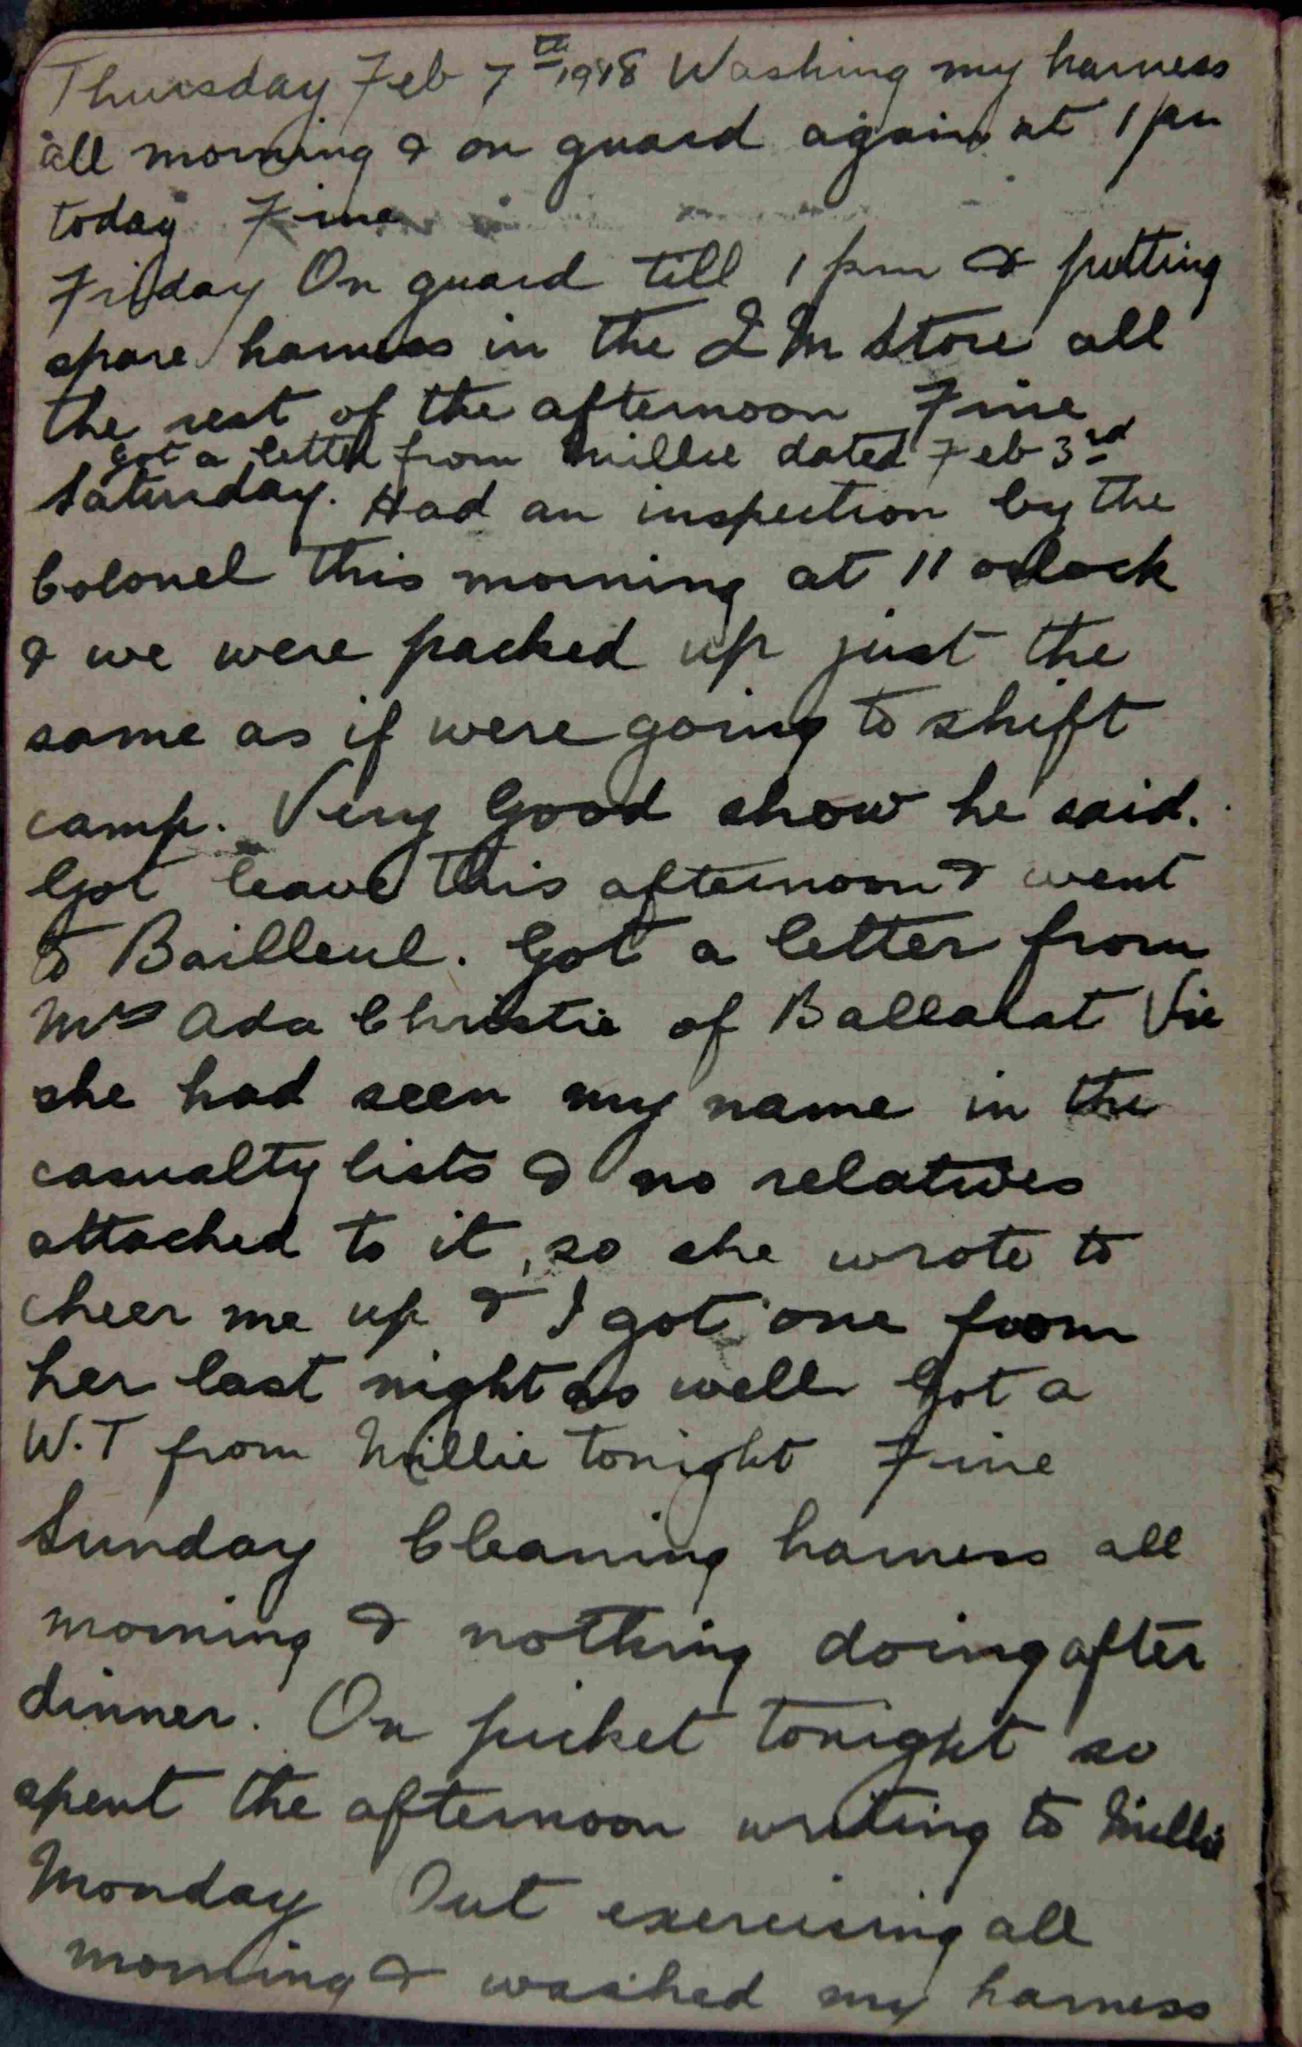 Thursday Feb 7th 1918 Washing my harness
all morning & on guard again at 1 pm
today Fine
Friday On guard till 1 pm & putting
spare harness in the Q M Store all
the rest of the afternoon Fine
Got a letter from Millie dated Feb 3rd
Saturday. Had an inspection by the
Colonel this morning at 11 oclock
& we were packed up just the
same as if were going to shift
camp. Very Good show he said.
Got leave this afternoon & went
to Bailleul. Got a letter from
Mrs Ada Christie of Ballarat Vic
she had seen my name in the
casualty lists & no relatives
attached to it, so she wrote to
cheer me up & I got one from
her last night as well Got a
W.T from Millie tonight Fine
Sunday Cleaning harness all
morning & nothing doing after
dinner. On picket tonight so
spent the afternoon writing to Millie
Monday Out exercising all
morning & washed my harness